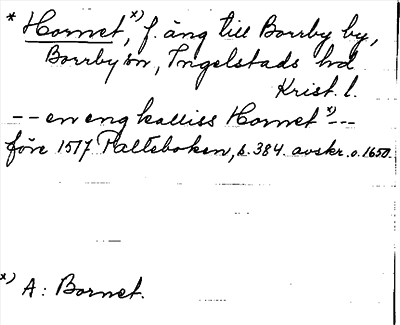 * Hornet, x) f. äng till Borrby by,
Borrby sn, Ingelstads hd
Krist. l.
-- en eng kalliss Hornet x) ---
före 1517 Palteboken, s. 384. avskr. o. 1650.
x) A: Bornet.